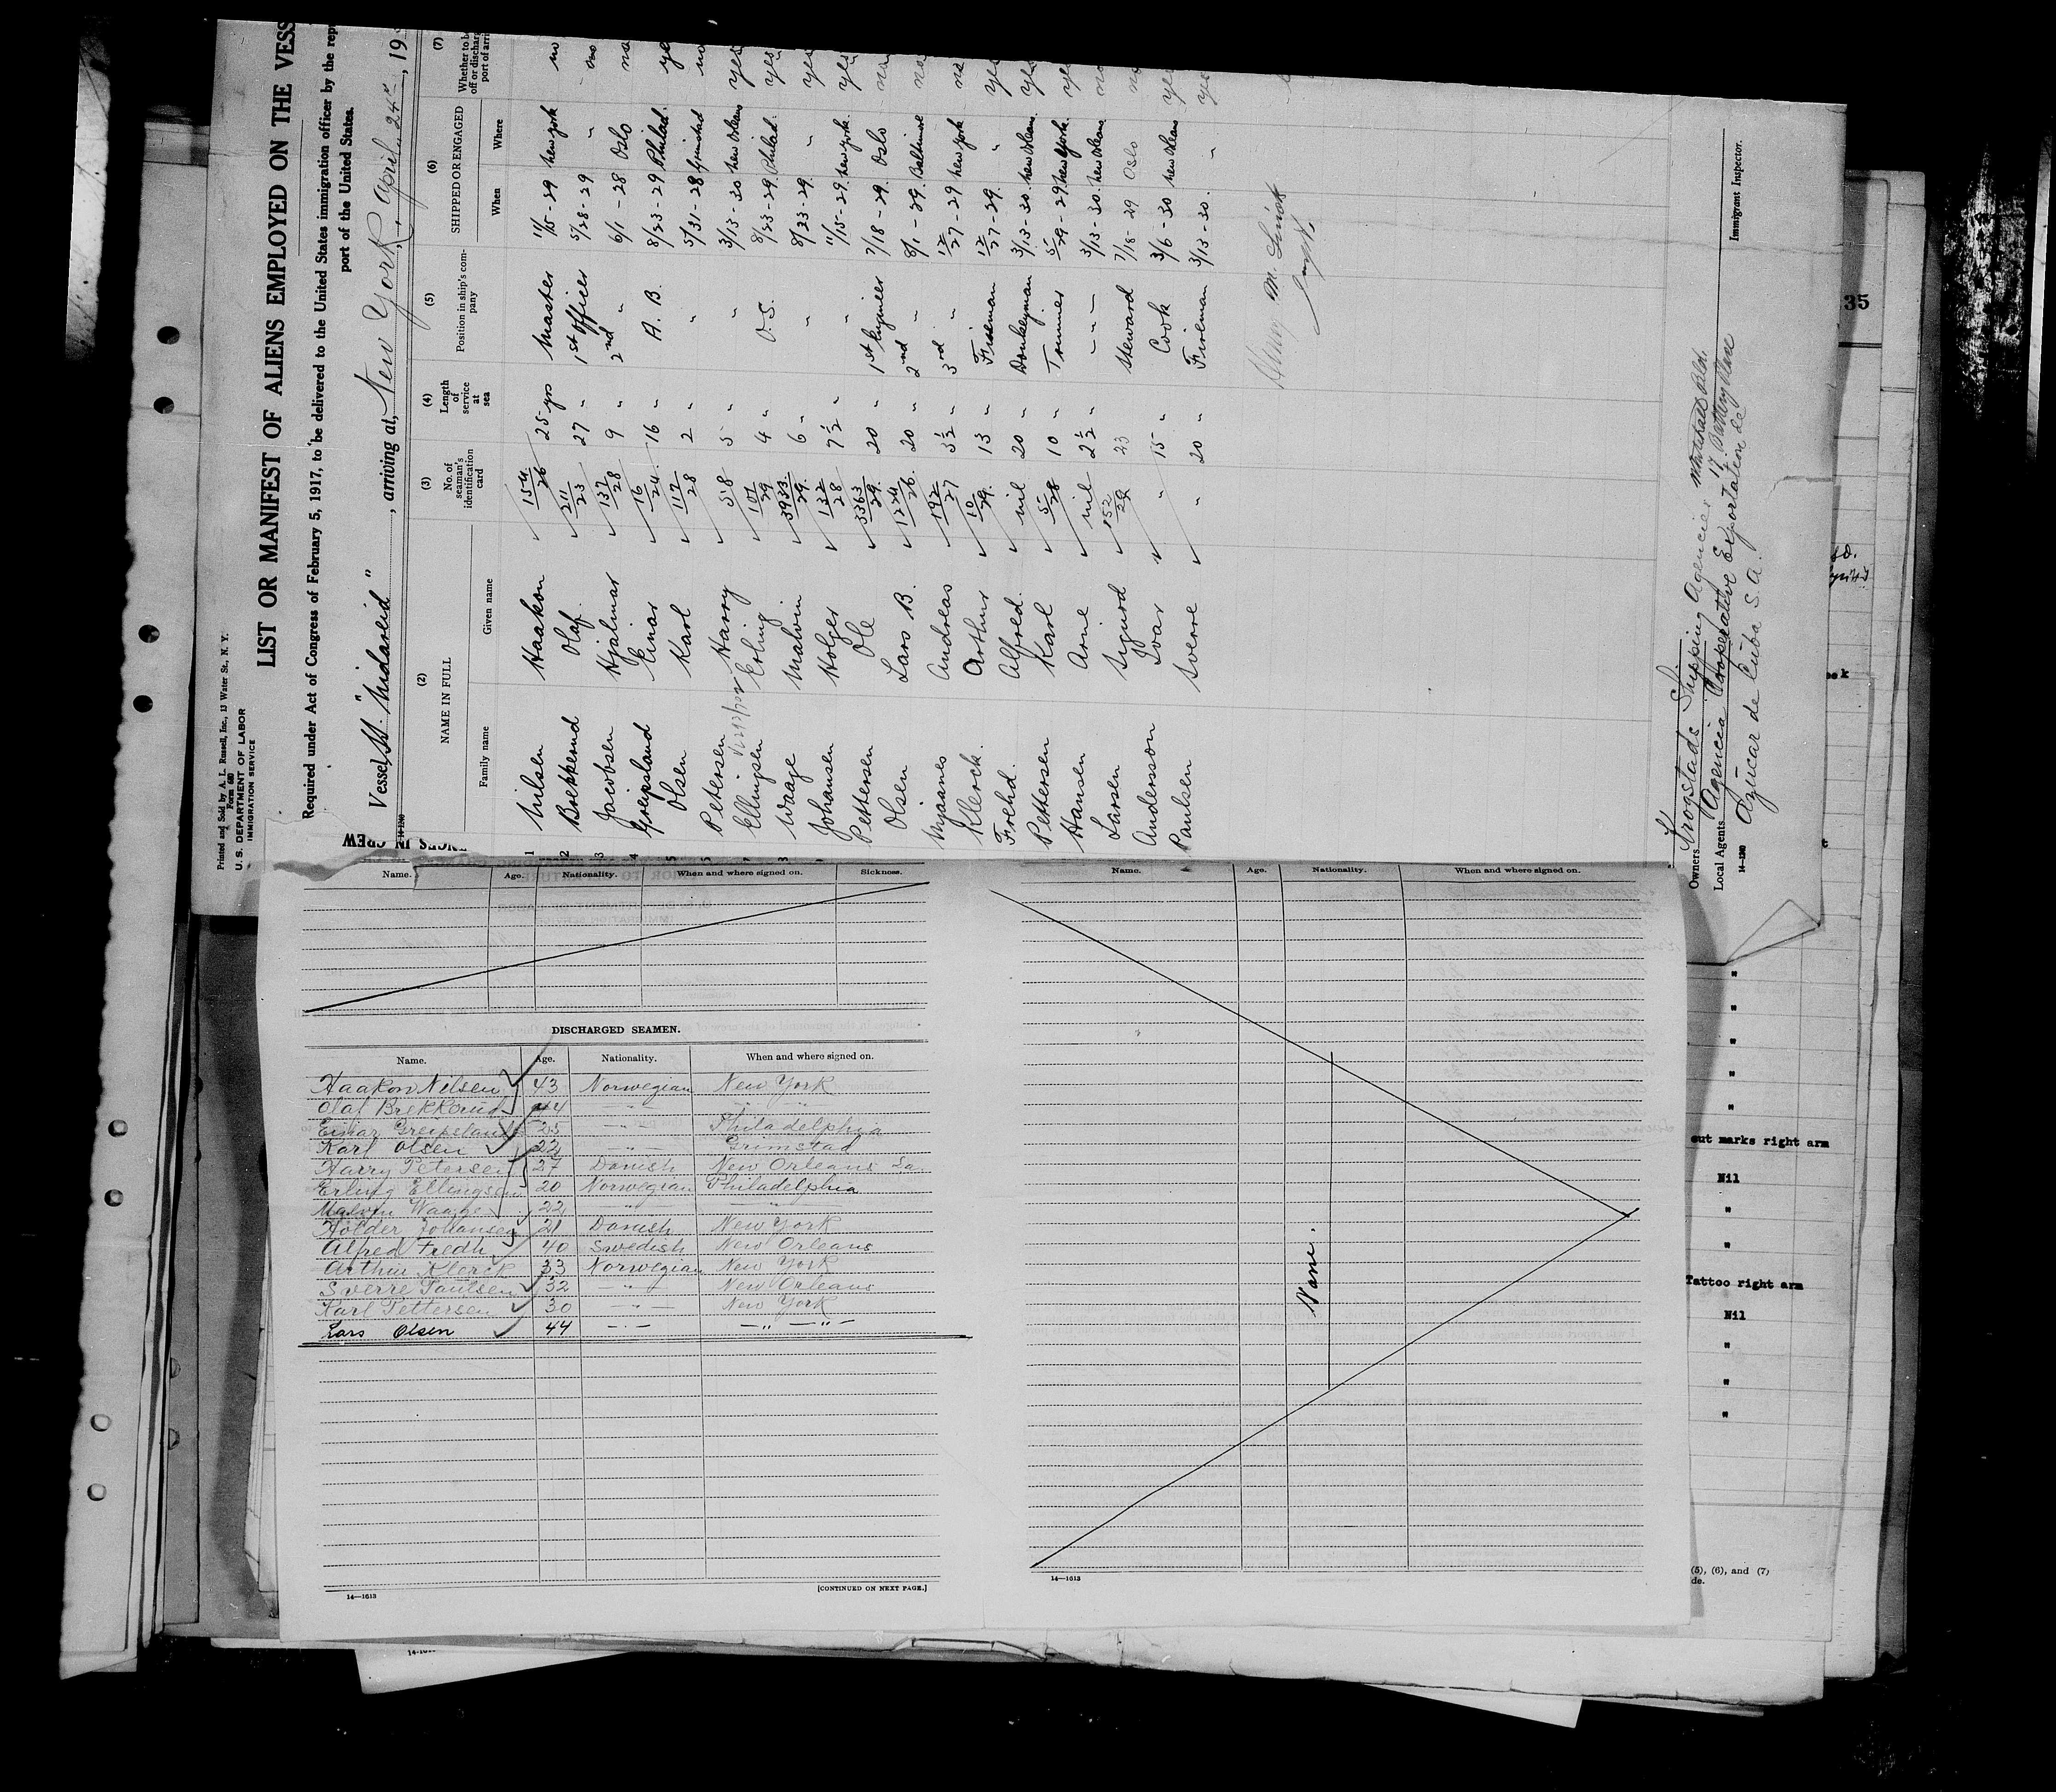 Printed and Sold by A. L. Russell, Inc., 13 Water St., N. Y.
Form 680
U. S. DEPARTMENT OF LABOR
IMMIGRATION SERVICE
LIST OR MANIFEST OF ALIENS EMPLOYED ON THE VESS
Required under Act of Congress of February 5, 1917, to be delivered to the United States immigration officer by the rep
port of the United States.
Vessel SS. "Nidareid", arriving at, New York, April 24th, 19
(2) (3) (4) (5) (6) (7)
NAME IN FULL No. of seaman's identification card Length of service at sea Position in ship's company SHIPPED OR ENGAGED Whether to be off or discharg port of arri
Family name Given name When Where
1 Nilsen Haakon 154/26 25 yrs Master 11/15-29 New York no
2 Brekkerud Olaf. 211/23 27 " 1st Officer 5/28-29 " no
3 Jacobsen Hjalmar 137/28 9 " 2nd " 6/1-28 Oslo no
4 Greipsland Einar 16/24. 16 " A. B. 8/23-29 Philad. ye
5 Olsen Karl 117/28 2 " " 5/31-28 Grimstad no
Petersen Harry 58 5 " " 3/13-30 New Orleans yes
Ellingsen Erling 107/29 4 " O. S. 8/23-29 Philad. yes
Waage Malvin 3933/29. 6 " " 8/23-29. " yes
Johansen Holger 132/28 7½ " " 11/15-29 New York. yes
Pettersen Ole 3363/29. 20 " 1st Engineer 7/18-29. Oslo no
Olsen Lars B. 1224/26. 20 " 2nd " 8/1-29. Baltimore no
Mjaanes Andreas 192/27 3½ " 3rd " 12/27-29 New York no
Klerck. Arthur 10/29. 13 " Fireman 12/27-29. " yes
Frehd. Alfred. nil 20 " Donkeyman 3/13-30 New Orleans. yes
Pettersen Karl 5/28 10 " Trimmer 5/29-29. New York. yes
Hansen Arne nil 2½ " 3/13-30. New Orleans. no
Larsen Sigurd 152/29 23 Steward 7/18-29 Oslo no
Andersson Ivar " 15 " Cook 3/6-30 New Orleans yes
Paulsen Sverre " 20 " Fireman 3/13-30. " yes
Owners
Shipping Agencies Whitehall Bldg.
Local Agents Agencia Cooperative Exportation de
17 Battery Place
Azúcar de Cuba S. A.
Immigrant Inspector.
14-1240
Name. Age. Nationality. When and where signed on. Sickness.
DISCHARGED SEAMEN.
Name. Age. Nationality. When and where signed on.
Haakon Nilsen 43 Norwegian New York
Olaf Brekkerud 44 — " — — " —
Einar Greipsland 25 — " — Philadelphia
Karl Olsen 22 — " — Grimstad
Harry Petersen 27 Danish New Orleans La.
Erling Ellingsen 20 Norwegian Philadelphia
Malvin Waage 22 — " — — " —
Holder Johansen 21 Danish New York
Alfred Fredh 40 Swedish New Orleans
Arthur Klerck 33 Norwegian New York
Sverre Paulsen 32 — " — New Orleans
Karl Pettersen 30 — " — New York
Lars Olsen 44 — " — — " — " —
[CONTINUED ON NEXT PAGE.]
14—1613
Name. Age. Nationality. When and where signed on.
None.
14—1613
35
cut marks right arm
Nil
"
"
Tattoo right arm
Nil
"
"
"
(5), (6), and (7)
de.